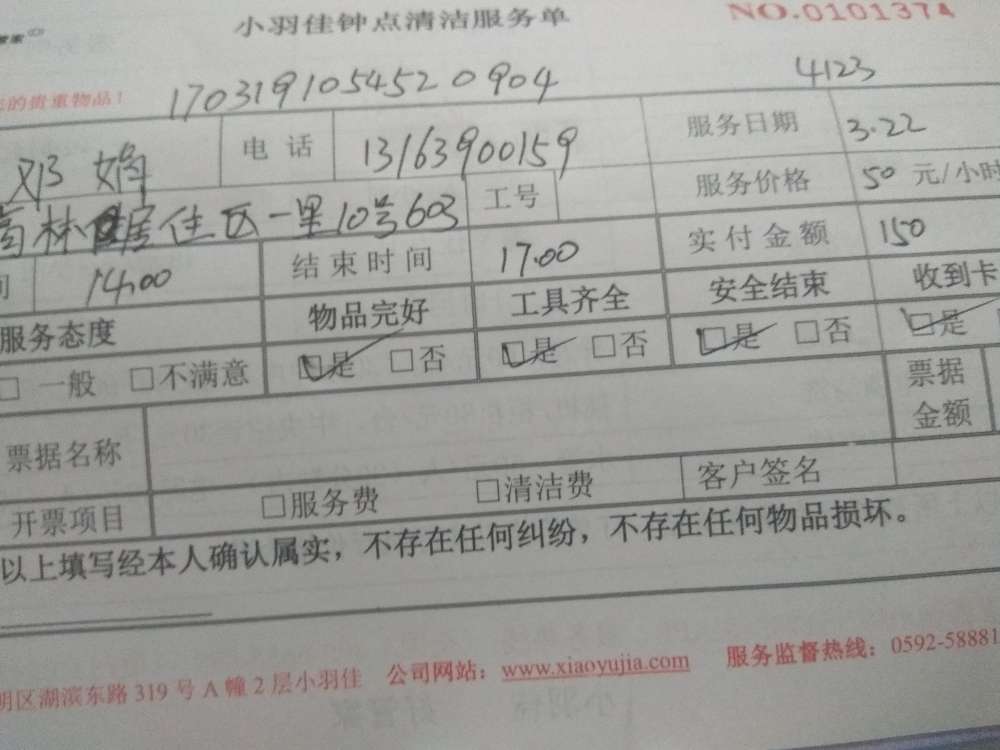 小羽佳钟点清洁服务单 NO.0101374
的贵重物品! 170319105452 0904 4123
邓娟 电话 13163900159 服务日期 3.22
林居住区一里10号603 工号 服务价格 50 元/小时
间 14.00 结束时间 17.00 实付金额 150
服务态度 物品完好 工具齐全 安全结束 收到卡
□ 一般 □不满意 ☑是 □否 ☑是 □否 ☑是 □否 ☑是
票据名称 票据金额
开票项目 □服务费 □清洁费 客户签名
以上填写经本人确认属实，不存在任何纠纷，不存在任何物品损坏。
明区湖滨东路 319 号 A 幢 2 层小羽佳 公司网站：www.xiaoyujia.com 服务监督热线：0592-58881